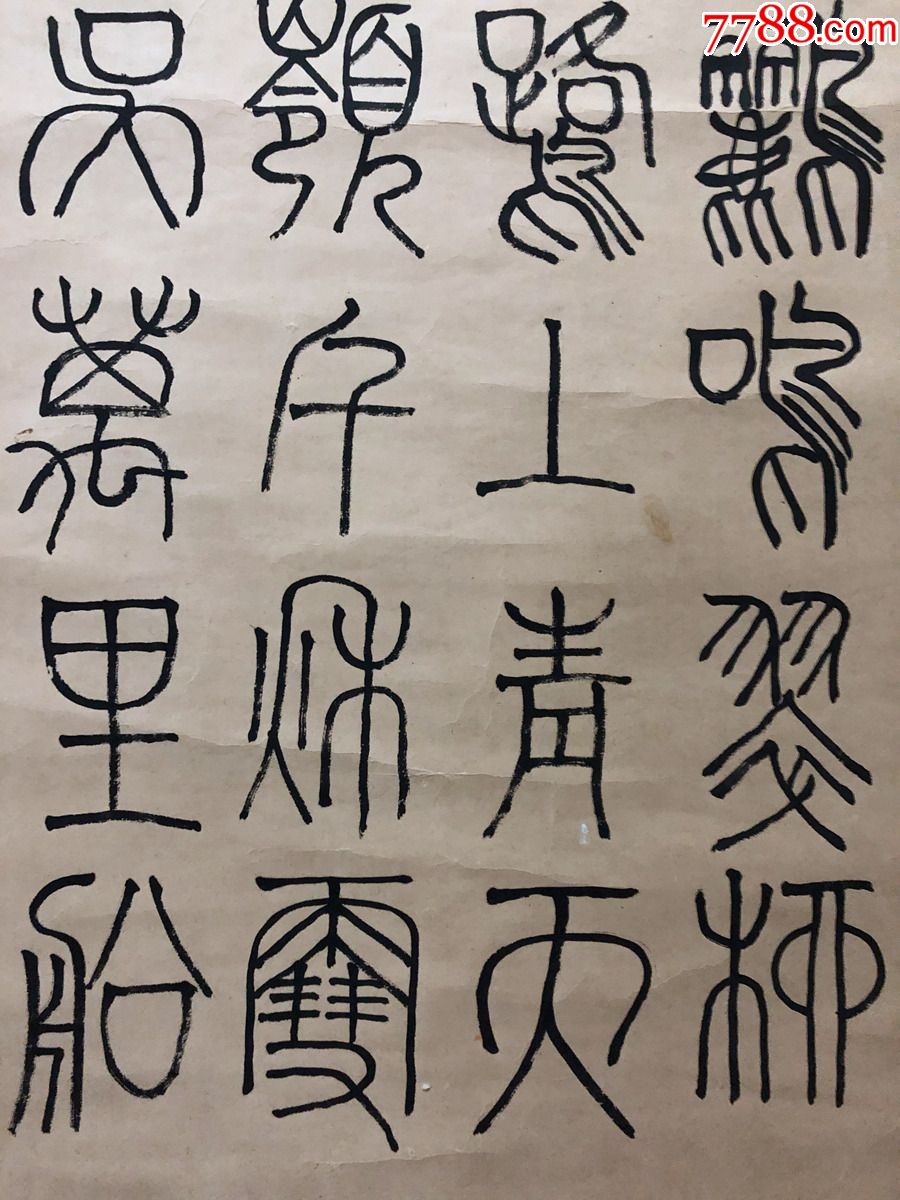 7788.com
鸝鳴翠柳
鷺上青天
嶺千秋雪
吳萬里船